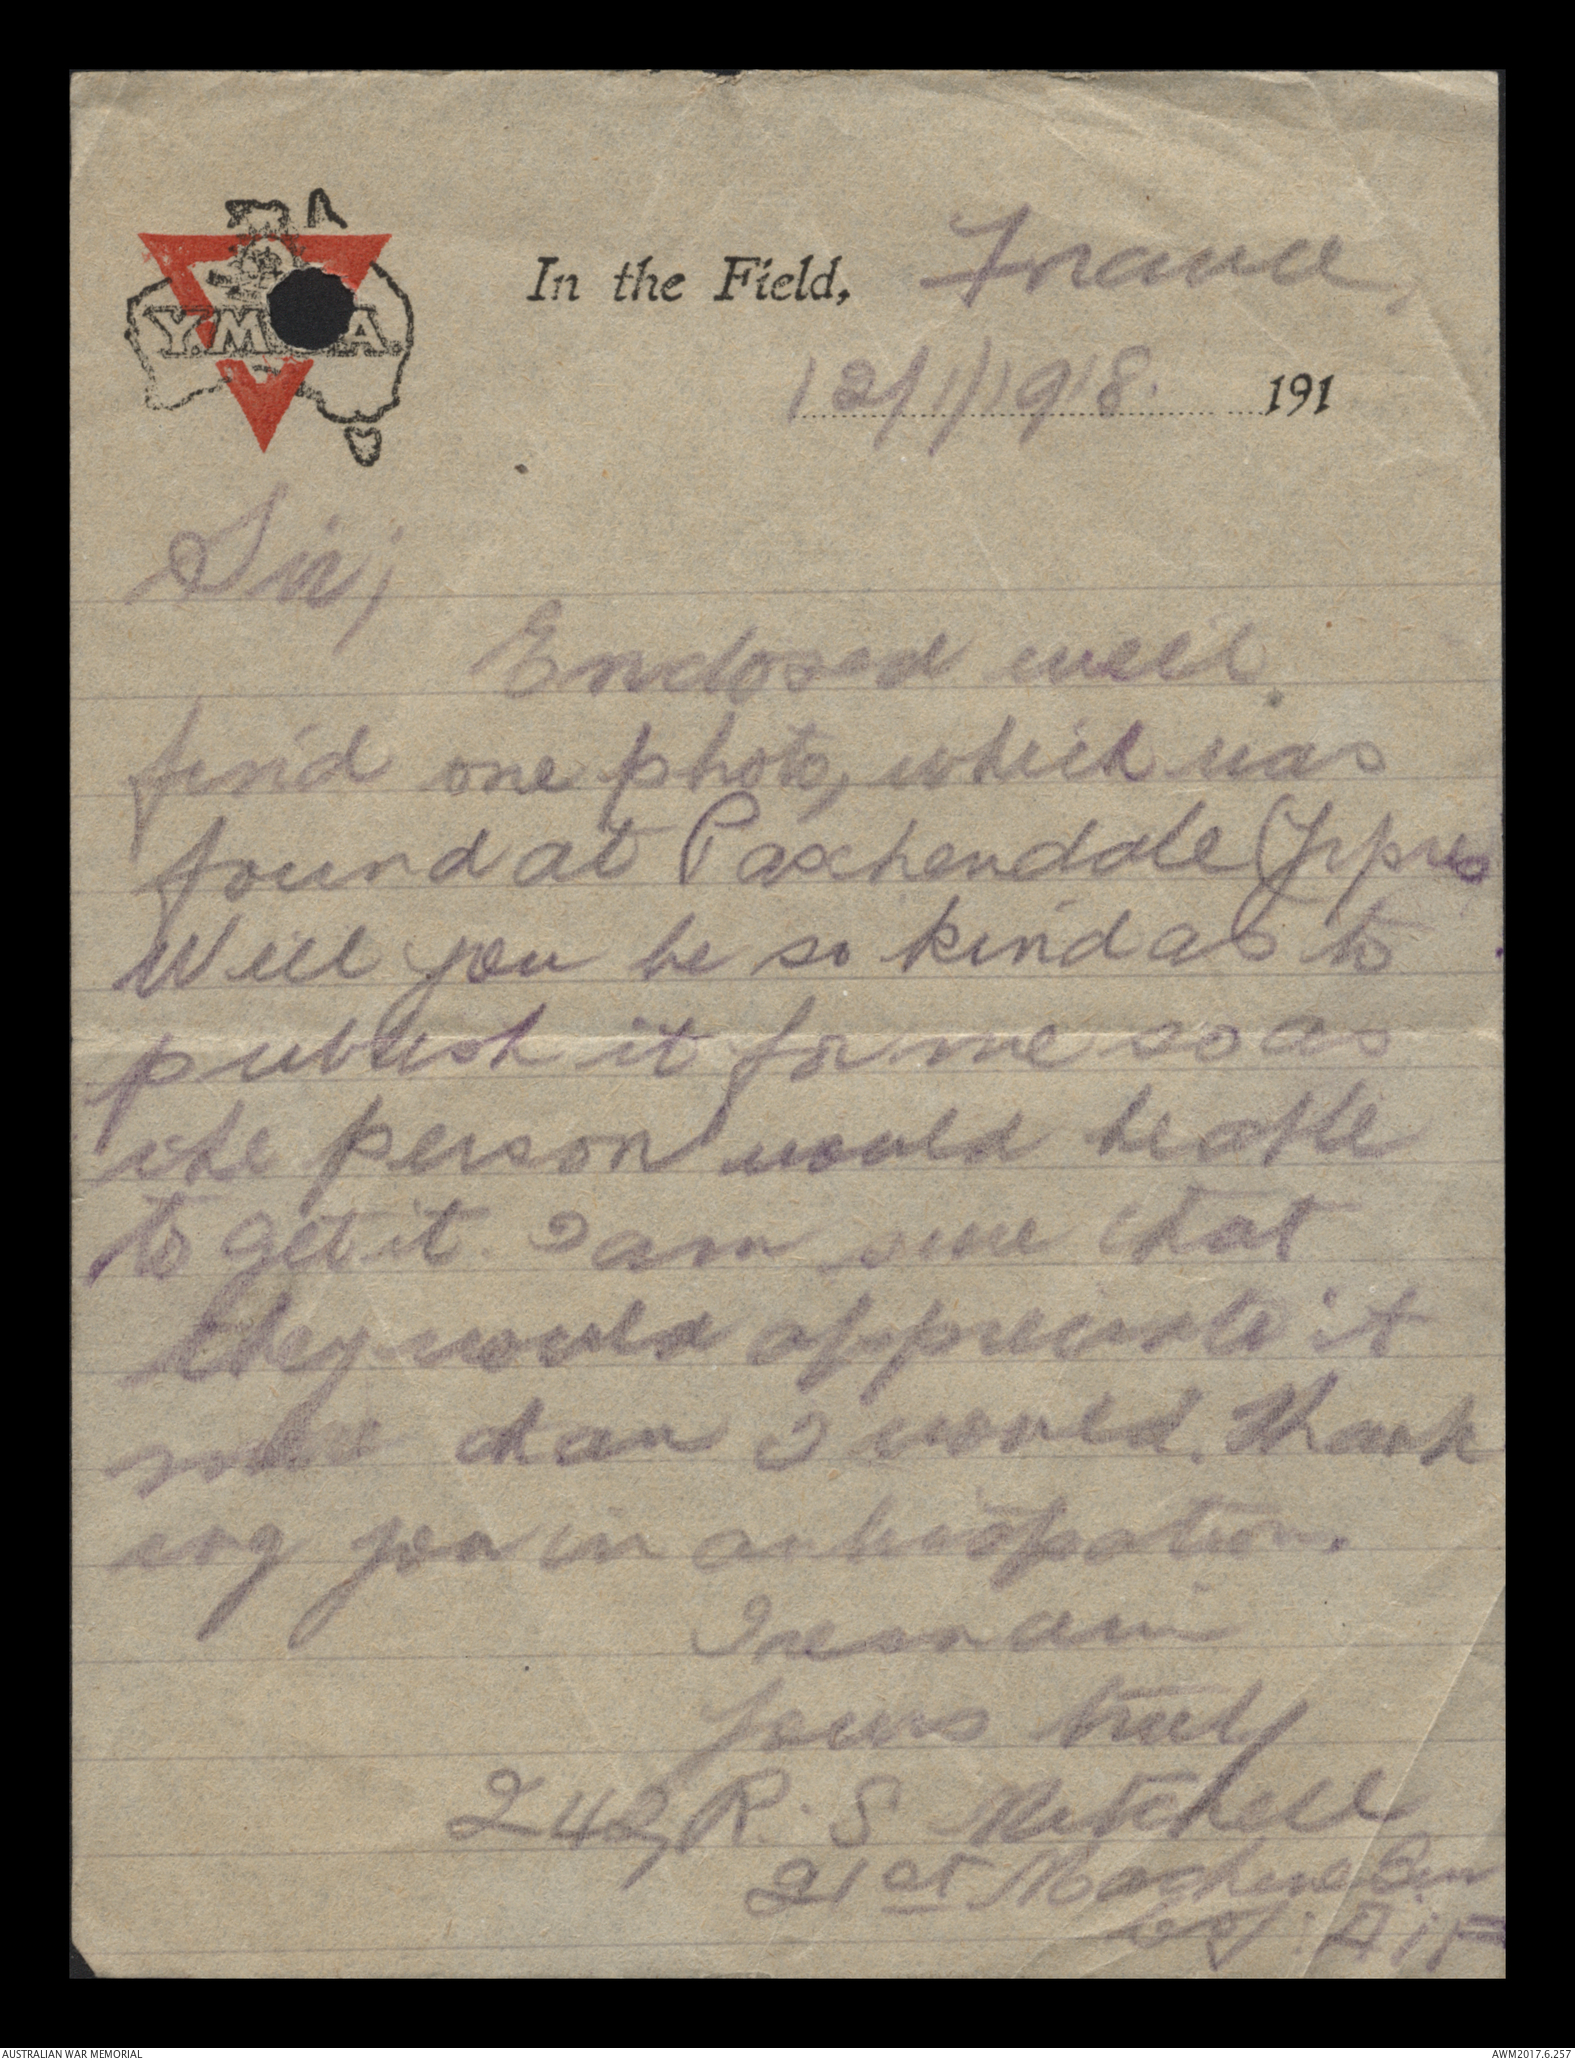 Y.M.C.A.
In the Field, France,
12/1/1918. 191
Sir;
Enclosed will
find one photo, which was
found at Paschendale (Yppres
Will you be so kind as to
publish it for me so as
the person would be able
to get it. I am sure that
they would appreciate it
more than I would. Thank
ing you in anticipation.
I remain
Yours truly
242, R. S Mitchell
21st Machine Gun
Coy: A.I.F
AUSTRALIAN WAR MEMORIAL
AWM2017.6.257